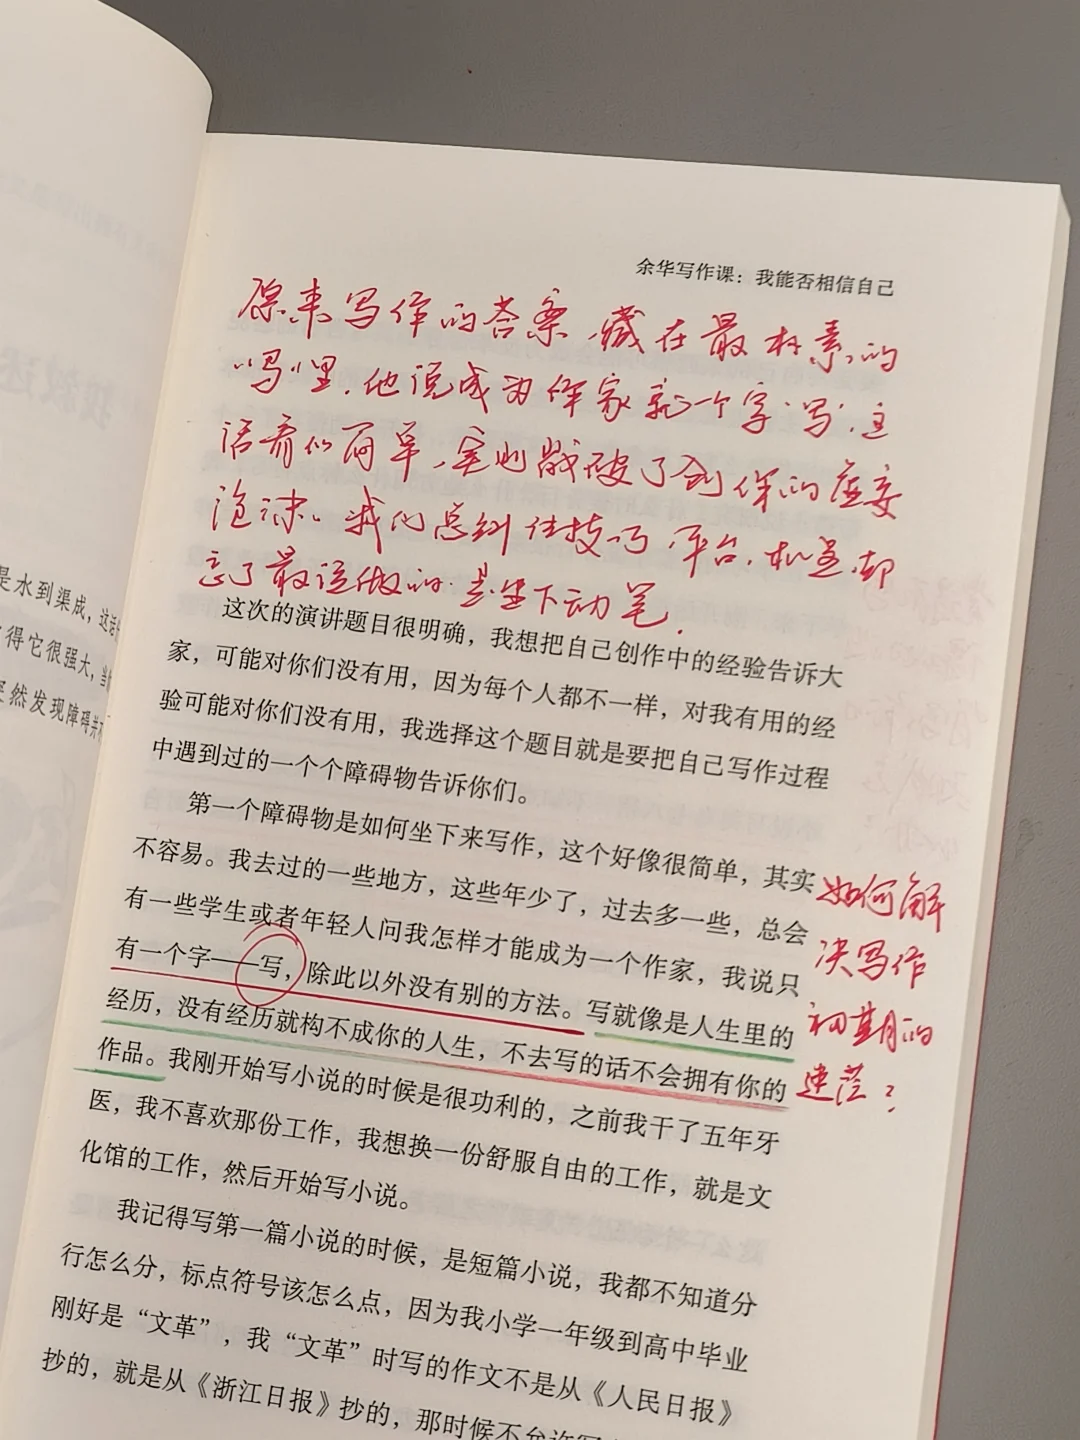 余华写作课：我能否相信自己
原来写作的答案，藏在最朴素的
“写”里。他说成为作家就一个字“写”，这
话看似简单，实则戳破了创作的虚妄
泡沫。我们总纠结技巧、平台、机遇，却
忘了最该做的，是坐下动笔。
是水到渠成，这话
得它很强大，当
突然发现障碍并
这次的演讲题目很明确，我想把自己创作中的经验告诉大
家，可能对你们没有用，因为每个人都不一样，对我有用的经
验可能对你们没有用，我选择这个题目就是要把自己写作过程
中遇到过的一个个障碍物告诉你们。
第一个障碍物是如何坐下来写作，这个好像很简单，其实
不容易。我去过的一些地方，这些年少了，过去多一些，总会
有一些学生或者年轻人问我怎样才能成为一个作家，我说只
有一个字——写，除此以外没有别的方法。写就像是人生里的
经历，没有经历就构不成你的人生，不去写的话不会拥有你的
作品。我刚开始写小说的时候是很功利的，之前我干了五年牙
医，我不喜欢那份工作，我想换一份舒服自由的工作，就是文
化馆的工作，然后开始写小说。
我记得写第一篇小说的时候，是短篇小说，我都不知道分
行怎么分，标点符号该怎么点，因为我小学一年级到高中毕业
刚好是“文革”，我“文革”时写的作文不是从《人民日报》
抄的，就是从《浙江日报》抄的，那时候不允许写
如何解
决写作
初期的
迷茫？